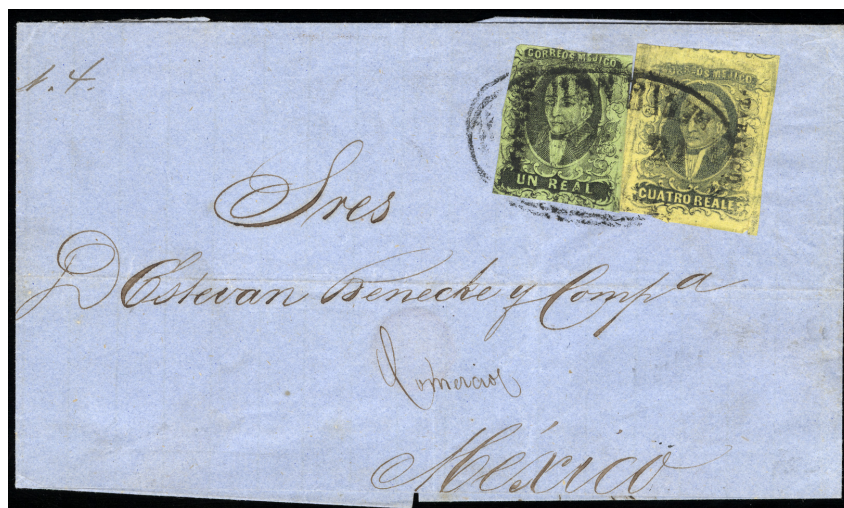 CORREOS MEJICO
UN REAL
CORREOS MEJICO
CUATRO REALE
Sres
D Estevan Benecke y Compa
Comercio
México